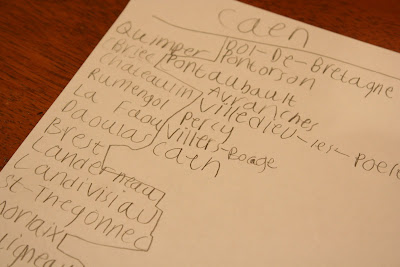 Caen
Quimper
Briec
Chateaulin
Rumengol
La Faou
Daoulas
Brest
Landerneau
Landivisiau
st-Thegonnec
morlaix
Dol-De-Bretagne
Pontorson
Pontaubault
Avranches
Villedieu-les-Poele
Percy
Villers-Bocage
Caen